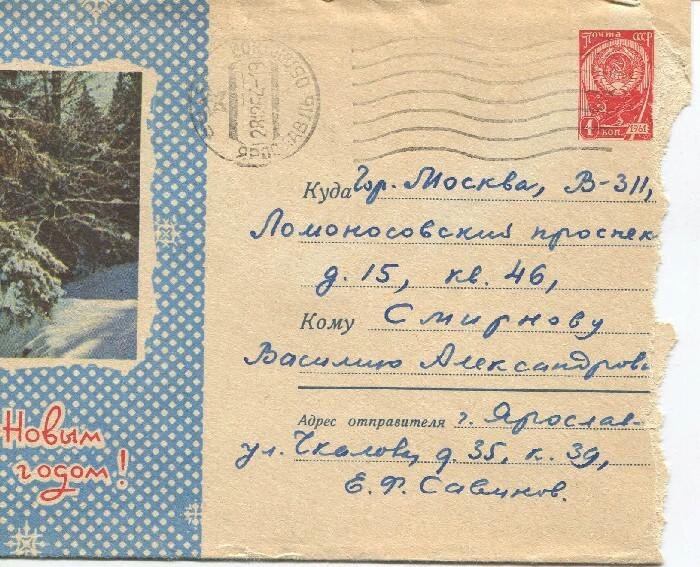 Почта СССР
4 коп. 1961
Куда Гор. Москва, В-311,
Ломоносовский проспек
д. 15, кв. 46,
Кому Смирнову
Василию Александров
Адрес отправителя г. Ярослав-
ул. Чкалова, д. 35, к. 39,
Е. Ф. Савинов.
Новым
годом!